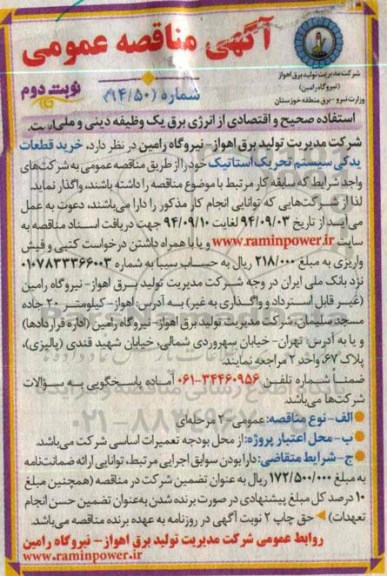 آگهی مناقصه عمومی
شماره (۹۴/۵۰)
نوبت دوم
شرکت مدیریت تولید برق اهواز
(نیروگاه رامین)
وزارت نیرو - برق منطقه خوزستان
استفاده صحیح و اقتصادی از انرژی برق یک وظیفه دینی و ملی است.
شرکت مدیریت تولید برق اهواز- نیروگاه رامین در نظر دارد، خرید قطعات
یدکی سیستم تحریک استاتیک خود را از طریق مناقصه عمومی به شرکت‌های
واجد شرایط که سابقه کار مرتبط با موضوع مناقصه را داشته باشند، واگذار نماید.
لذا از شرکت‌هایی که توانایی انجام کار مذکور را دارا می‌باشند، دعوت به عمل
می‌آید از تاریخ ۹۴/۰۹/۰۳ لغایت ۹۴/۰۹/۱۰ جهت دریافت اسناد مناقصه به
سایت www.raminpower.ir و یا با همراه داشتن درخواست کتبی و فیش
واریزی به مبلغ ۲۱۸/۰۰۰ ریال به حساب سیبا به شماره ۰۱۰۷۸۳۳۳۶۶۰۰۳
نزد بانک ملی ایران در وجه شرکت مدیریت تولید برق اهواز- نیروگاه رامین
(غیر قابل استرداد و واگذاری به غیر) به آدرس: اهواز- کیلومتر ۲۰ جاده
مسجد سلیمان، شرکت مدیریت تولید برق اهواز- نیروگاه رامین (اداره قراردادها)
و یا به آدرس: تهران- خیابان سهروردی شمالی، خیابان شهید قندی (پالیزی)،
پلاک ۶۷، واحد ۲ مراجعه نمایند.
ضمناً شماره تلفن ۳۴۴۶۰۹۵۶-۰۶۱ آماده پاسخگویی به سوالات
شرکت‌ها می‌باشد.
الف- نوع مناقصه: عمومی- ۲ مرحله‌ای
ب- محل اعتبار پروژه: از محل بودجه تعمیرات اساسی شرکت می‌باشد.
ج- شرایط متقاضی: دارا بودن سوابق اجرایی مرتبط، توانایی ارائه ضمانت‌نامه
به مبلغ ۱۷۲/۵۰۰/۰۰۰ ریال به عنوان تضمین شرکت در مناقصه (همچنین مبلغ
۱۰ درصد کل مبلغ پیشنهادی در صورت برنده شدن به‌عنوان تضمین حسن انجام
تعهدات) حق چاپ ۲ نوبت آگهی در روزنامه به عهده برنده مناقصه می‌باشد.
روابط عمومی شرکت مدیریت تولید برق اهواز- نیروگاه رامین
www.raminpower.ir